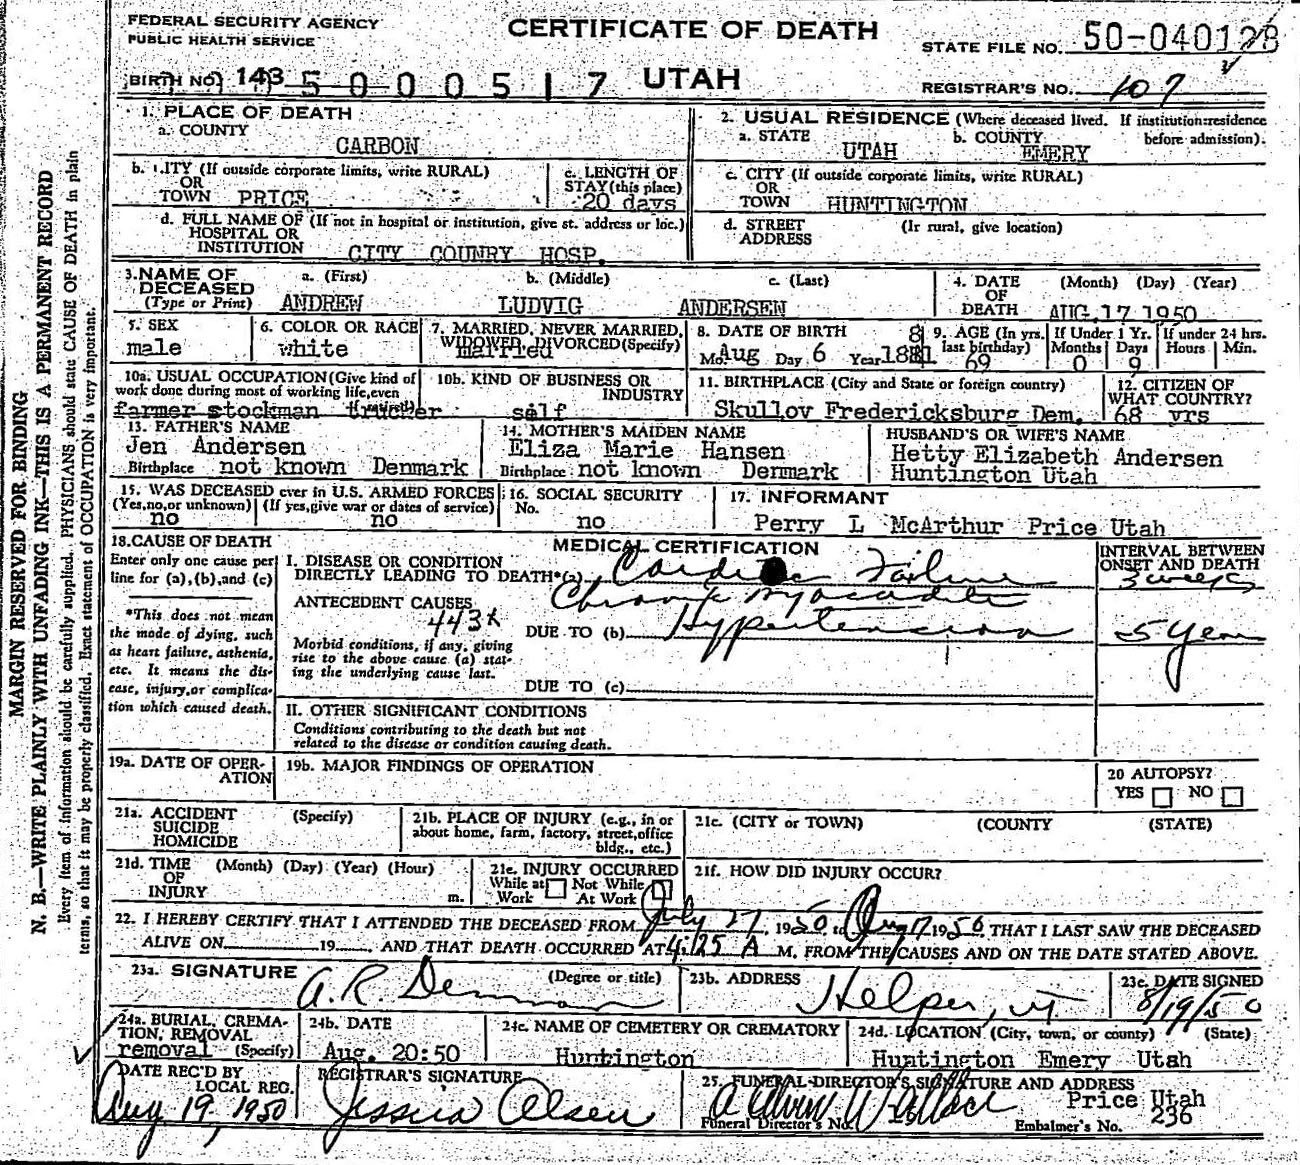 FEDERAL SECURITY AGENCY
PUBLIC HEALTH SERVICE
CERTIFICATE OF DEATH
STATE FILE NO. 50-040128
BIRTH NO. 143 5 0 0 0 5 1 7 UTAH
REGISTRAR'S NO. 107
1. PLACE OF DEATH
a. COUNTY
CARBON
2. USUAL RESIDENCE (Where deceased lived. If institution:residence before admission).
a. STATE UTAH b. COUNTY EMERY
b. CITY (If outside corporate limits, write RURAL)
OR
TOWN PRICE
c. LENGTH OF STAY (this place)
20 days
c. CITY (If outside corporate limits, write RURAL)
OR
TOWN HUNTINGTON
d. FULL NAME OF (If not in hospital or institution, give st. address or loc.)
HOSPITAL OR
INSTITUTION CITY COUNRY HOSP.
d. STREET (If rural, give location)
ADDRESS
3. NAME OF DECEASED (Type or Print)
a. (First) b. (Middle) c. (Last)
ANDREW LUDVIG ANDERSEN
4. DATE OF DEATH (Month) (Day) (Year)
AUG. 17 1950
5. SEX
male
6. COLOR OR RACE
white
7. MARRIED, NEVER MARRIED, WIDOWED, DIVORCED (Specify)
married
8. DATE OF BIRTH
Mo. Aug Day 6 Year 1881
9. AGE (In yrs. last birthday)
69
If Under 1 Yr. Months Days
0 9
If under 24 hrs. Hours Min.
10a. USUAL OCCUPATION (Give kind of work done during most of working life, even
farmer stockman trucker
10b. KIND OF BUSINESS OR INDUSTRY
self
11. BIRTHPLACE (City and State or foreign country)
Skullov Fredericksburg Dem.
12. CITIZEN OF WHAT COUNTRY?
68 yrs
13. FATHER'S NAME
Jen Andersen
Birthplace not known Denmark
14. MOTHER'S MAIDEN NAME
Eliza Marie Hansen
Birthplace not known Denmark
HUSBAND'S OR WIFE'S NAME
Hetty Elizabeth Andersen
Huntington Utah
15. WAS DECEASED ever in U.S. ARMED FORCES
(Yes, no, or unknown) (If yes, give war or dates of service)
no no
16. SOCIAL SECURITY No.
no
17. INFORMANT
Perry L McArthur Price Utah
18. CAUSE OF DEATH
Enter only one cause per line for (a), (b), and (c)
*This does not mean the mode of dying, such as heart failure, asthenia, etc. It means the disease, injury, or complication which caused death.
MEDICAL CERTIFICATION
INTERVAL BETWEEN ONSET AND DEATH
I. DISEASE OR CONDITION
DIRECTLY LEADING TO DEATH* (a) Cardiac Failure 3 weeks
Chronic Myocarditis
ANTECEDENT CAUSES
443X
DUE TO (b) Hypertension 5 Years
Morbid conditions, if any, giving rise to the above cause (a) stating the underlying cause last.
DUE TO (c)
II. OTHER SIGNIFICANT CONDITIONS
Conditions contributing to the death but not related to the disease or condition causing death.
19a. DATE OF OPERATION
19b. MAJOR FINDINGS OF OPERATION
20 AUTOPSY?
YES NO
21a. ACCIDENT (Specify)
SUICIDE
HOMICIDE
21b. PLACE OF INJURY (e.g., in or about home, farm, factory, street, office bldg., etc.)
21c. (CITY or TOWN) (COUNTY) (STATE)
21d. TIME (Month) (Day) (Year) (Hour)
OF
INJURY m.
21e. INJURY OCCURRED
While at Work Not While At Work
21f. HOW DID INJURY OCCUR?
22. I HEREBY CERTIFY THAT I ATTENDED THE DECEASED FROM July 27, 1950 to Aug 17 1950, THAT I LAST SAW THE DECEASED
ALIVE ON 19 , AND THAT DEATH OCCURRED AT 4:25 A M. FROM THE CAUSES AND ON THE DATE STATED ABOVE.
23a. SIGNATURE (Degree or title)
A. R. Demman
23b. ADDRESS
Helper, Ut
23c. DATE SIGNED
8/19/50
24a. BURIAL, CREMATION, REMOVAL (Specify)
removal
24b. DATE
Aug. 20:50
24c. NAME OF CEMETERY OR CREMATORY
Huntington
24d. LOCATION (City, town, or county) (State)
Huntington Emery Utah
DATE REC'D BY LOCAL REG.
Aug 19, 1950
REGISTRAR'S SIGNATURE
Jessica Olsen
25. FUNERAL DIRECTOR'S SIGNATURE AND ADDRESS
Wallace
Price Utah
Funeral Director's No. Embalmer's No. 236
MARGIN RESERVED FOR BINDING
N. B.—WRITE PLAINLY WITH UNFADING INK—THIS IS A PERMANENT RECORD
Every item of information should be carefully supplied. PHYSICIANS should state CAUSE OF DEATH in plain
terms, so that it may be properly classified. Exact statement of OCCUPATION is very important.